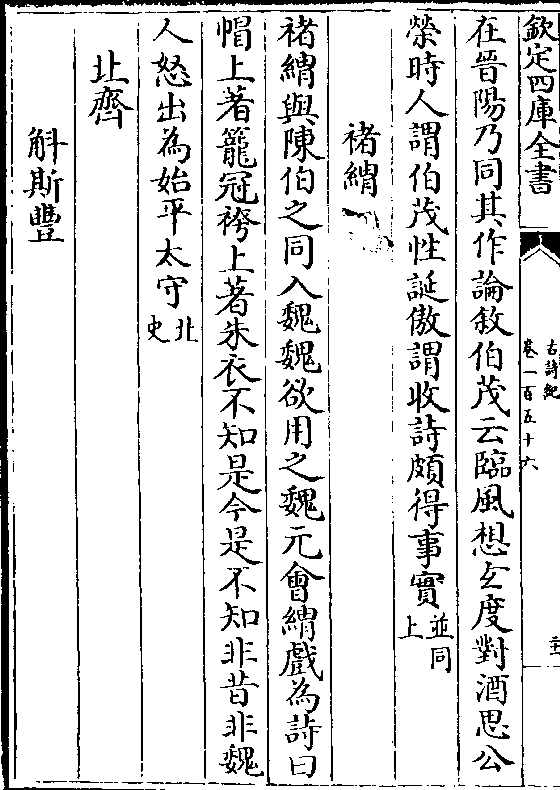 欽定四庫全書
古詩紀
卷一百五十六
在晉陽乃同其作論敘伯茂云臨風想玄度對酒思公
榮時人謂伯茂性誕傲謂收詩頗得事實並同上
褚緭
褚緭與陳伯之同入魏魏欲用之魏元會緭戲為詩曰
帽上著籠冠袴上著朱衣不知是今是不知非昔非魏
人怒出為始平太守北史
北齊
斛斯豐